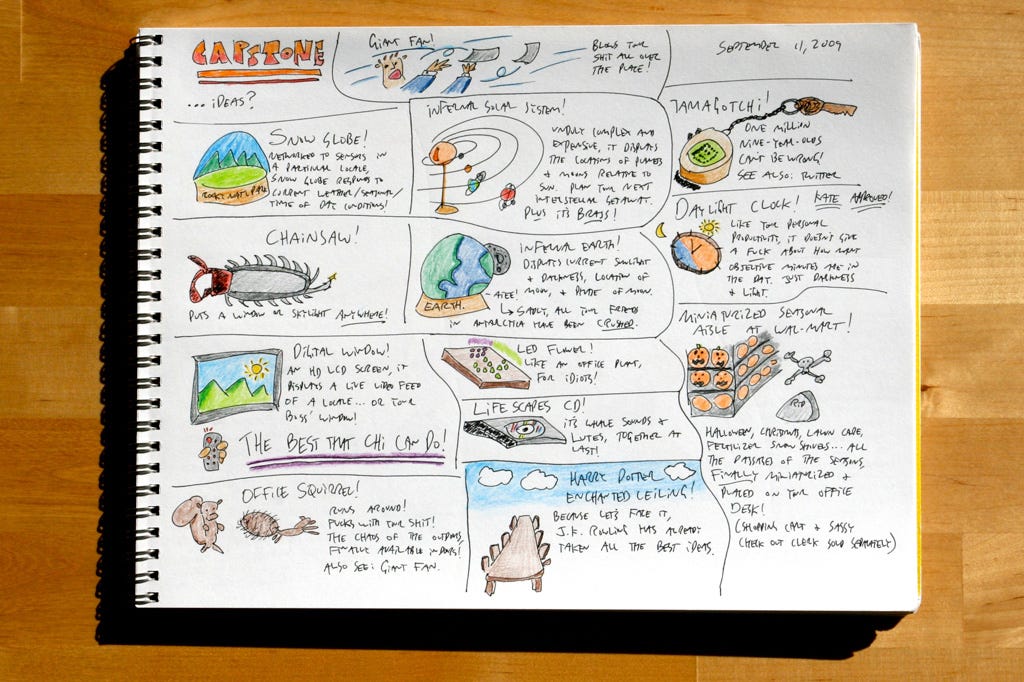 CAPSTONE
... IDEAS?
GIANT FAN!
BLOWS YOUR
SHIT ALL OVER
THE PLACE!
SEPTEMBER 11, 2009
SNOW GLOBE!
NETWORKED TO SENSORS IN
A PARTICULAR LOCALE,
SNOW GLOBE RESPONDS TO
CURRENT WEATHER/SEASONAL/
TIME OF DAY CONDITIONS!
INFERNAL SOLAR SYSTEM!
UNDULY COMPLEX AND
EXPENSIVE, IT DISPLAYS
THE LOCATIONS OF PLANETS
& MOONS RELATIVE TO
SUN. PLAN YOUR NEXT
INTERSTELLAR GETAWAY.
PLUS IT'S BRASS!
TAMAGOTCHI!
ONE MILLION
NINE-YEAR-OLDS
CAN'T BE WRONG!
SEE ALSO: TWITTER
DAYLIGHT CLOCK! KATE APPROVED!
LIKE YOUR PERSONAL
PRODUCTIVITY, IT DOESN'T GIVE
A FUCK ABOUT HOW MANY
OBJECTIVE MINUTES ARE IN
THE DAY. JUST DARKNESS
& LIGHT.
CHAINSAW!
PUTS A WINDOW OR SKYLIGHT ANYWHERE!
INFERNAL EARTH!
DISPLAYS CURRENT SUNLIGHT
& DARKNESS, LOCATION OF
MOON, & PHASE OF MOON.
EARTH.
↳ SADLY, ALL YOUR FRIENDS
IN ANTARCTICA HAVE BEEN CRUSHED.
MINIATURIZED SEASONAL
AISLE AT WAL-MART!
RIP
HALLOWEEN, CHRISTMAS, LAWN CARE,
FERTILIZER SNOW SHOVELS... ALL
THE PASSAGES OF THE SEASONS,
FINALLY MINIATURIZED &
PLACED ON YOUR OFFICE
DESK!
(SHOPPING CART & SASSY
CHECK OUT CLERK SOLD SEPARATELY)
DIGITAL WINDOW!
AN HD LCD SCREEN, IT
DISPLAYS A LIVE VIDEO FEED
OF A LOCALE... OR YOUR
BOSS' WINDOW!
THE BEST THAT CHI CAN DO!
LED FLOWER!
LIKE AN OFFICE PLANT,
FOR IDIOTS!
LIFESCAPES CD!
IT'S WHALE SOUNDS &
LUTES, TOGETHER AT
LAST!
OFFICE SQUIRREL!
RUNS AROUND!
FUCKS WITH YOUR SHIT!
THE CHAOS OF THE OUTDOORS,
FINALLY AVAILABLE INDOORS!
ALSO SEE: GIANT FAN.
HARRY POTTER
ENCHANTED CEILING!
BECAUSE LET'S FACE IT,
J.K. ROWLING HAS ALREADY
TAKEN ALL THE BEST IDEAS.